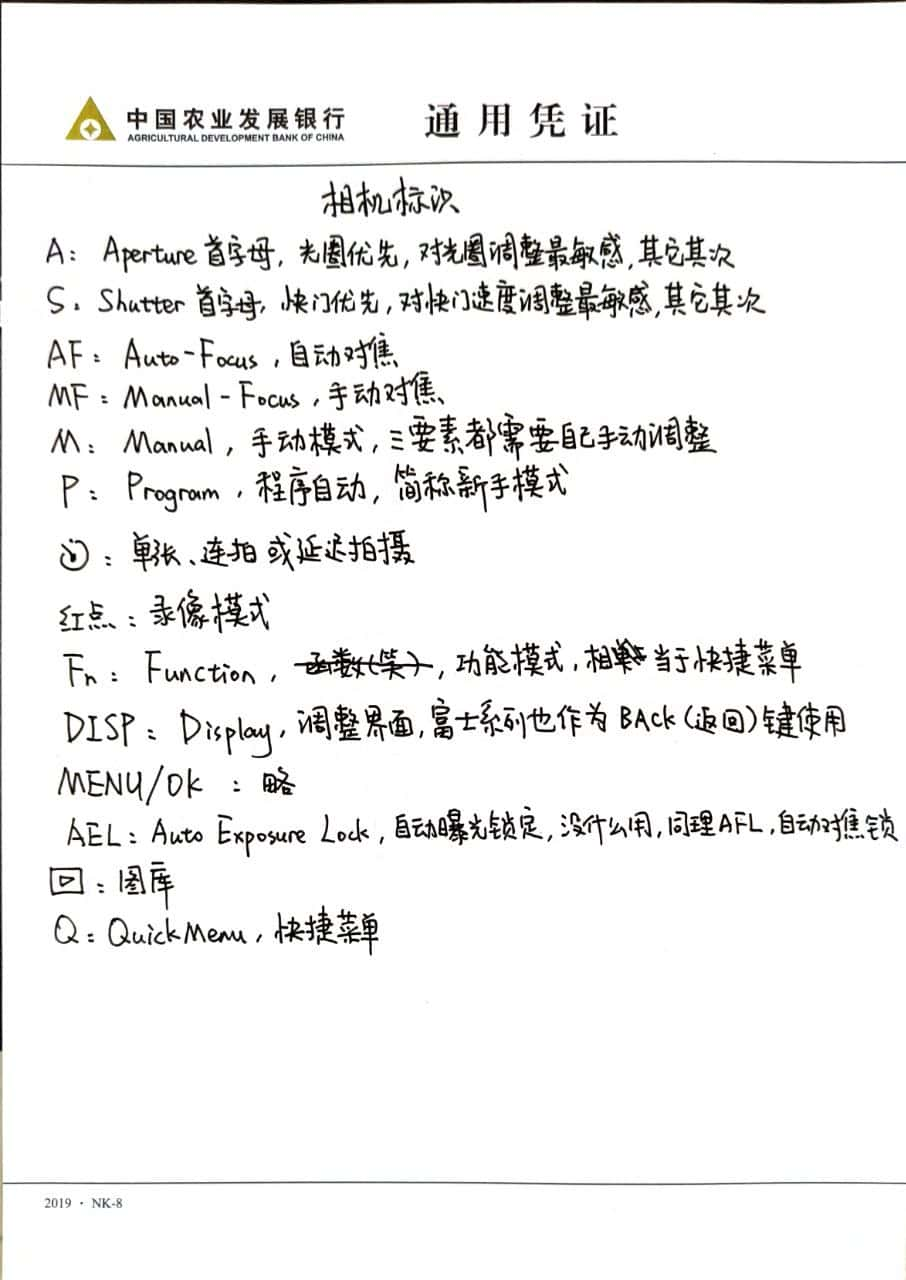 中国农业发展银行 通用凭证
AGRICULTURAL DEVELOPMENT BANK OF CHINA
相机标识
A: Aperture首字母, 光圈优先, 对光圈调整最敏感, 其它其次
S: Shutter首字母, 快门优先, 对快门速度调整最敏感, 其它其次
AF: Auto-Focus, 自动对焦
MF: Manual-Focus, 手动对焦
M: Manual, 手动模式, 三要素都需要自己手动调整
P: Program, 程序自动, 简称新手模式
: 单张、连拍或延迟拍摄
红点: 录像模式
Fn: Function, 函数(笑), 功能模式, 相当于快捷菜单
DISP: Display, 调整界面, 富士系列也作为BACK(返回)键使用
MENU/OK: 略
AEL: Auto Exposure Lock, 自动曝光锁定, 没什么用, 同理AFL, 自动对焦锁
: 图库
Q: QuickMenu, 快捷菜单
2019 · NK-8